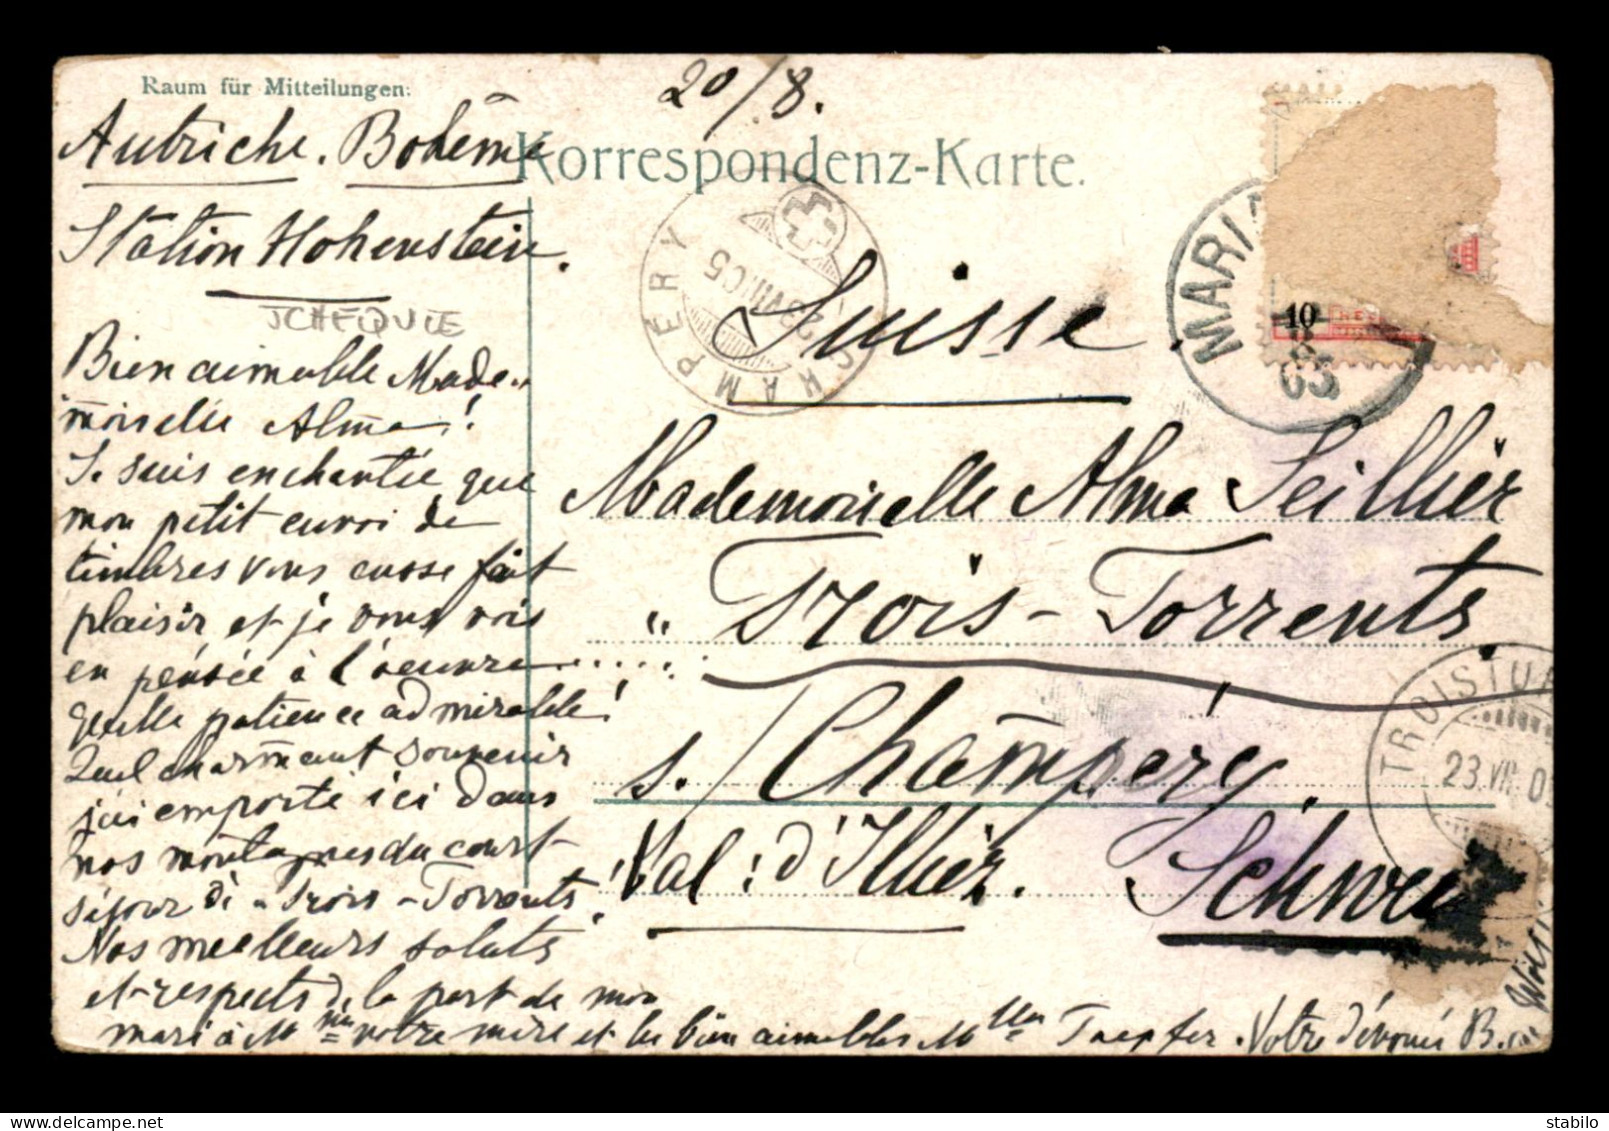 Raum für Mitteilungen:
20/8.
Autriche. Bohême
Korrespondenz-Karte.
Station Hohenstein.
TCHEQUIE
Bien aimable Made-
moiselle Alma!
Je suis enchantée que
mon petit envoi de
timbres vous eusse fait
plaisir et je vous vois
en pensée à l'oeuvre.....
quelle patience admirable!
Quel charmant souvenir
j'ai emporté ici dans
nos montagnes du court
séjour à "Trois-Torrents.
Nos meilleurs saluts
et respects de la part de mon
mari à Mme votre mère et les bien aimables Mlles Toepfer. Votre dévouée B.
Suisse.
Mademoiselle Alma Seillier
" Trois-Torrents.
s./Champéry.
Val: d'Illier. Schweiz
CHAMPÉRY
23.VIII.05
MARI
10
05
TROISTOR
23.VIII.05